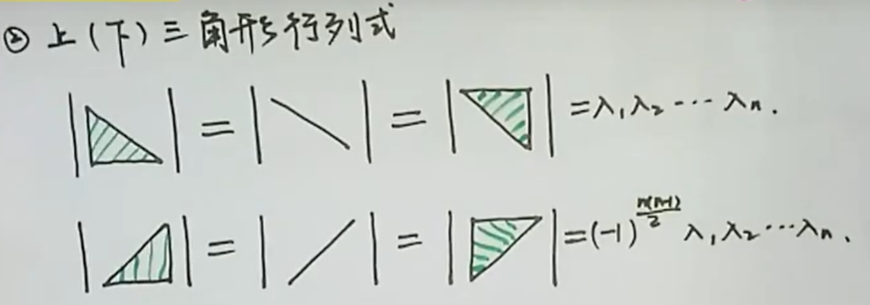 ② 上（下）三角形行列式
= = = λ₁λ₂ ⋯ λₙ.
= = = (-1)^{n(n-1)/2} λ₁λ₂⋯λₙ.